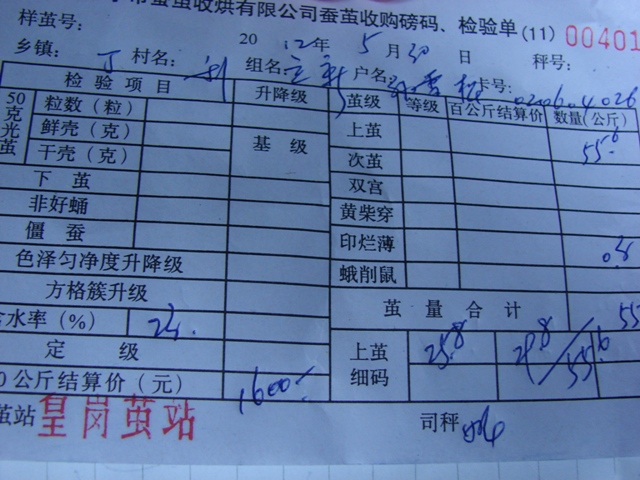 市蚕茧收烘有限公司蚕茧收购磅码、检验单(11) 00401
样茧号:
2012年5月30日 秤号:
乡镇: 丁 村名: 刘 组名: 户名: 卡号: 020604026
检验项目 升降级 茧级 等级 百公斤结算价 数量(公斤)
50克光茧 粒数(粒) 上茧 55.6
鲜壳(克) 基级 次茧
干壳(克) 双宫
下茧 黄柴穿
非好蛹 印烂薄 0.8
僵蚕 蛾削鼠
色泽匀净度升降级
方格簇升级 茧量合计 55
含水率(%) 上茧细码 25.8 29.8 / 55.6
定级
0公斤结算价(元) 1600
茧站 皇岗茧站 司秤